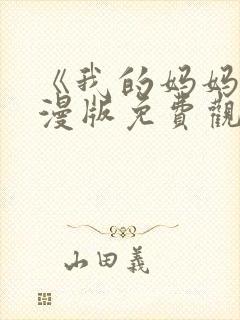 《我的妈妈
漫版免費觀
山田義